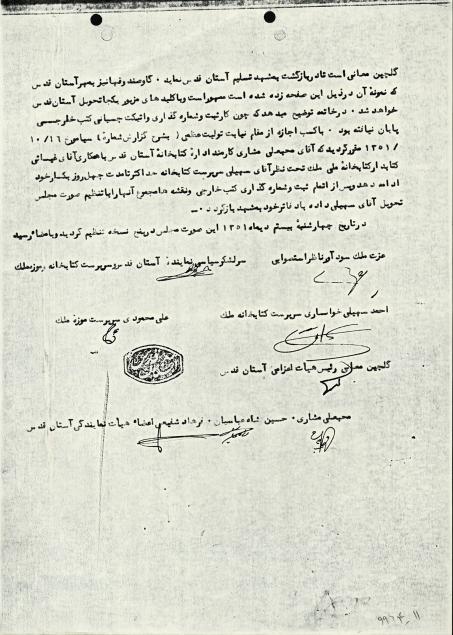 گلچین معانی است تا در بازگشت بمشهد تسلیم آستان قدس نماید . گاوصندوقها نیز بمهر آستان قدس
که نمونه آن در ذیل این صفحه زده شده است ممهور است و با کلید های مزبور یکجا تحویل آستان قدس
خواهد شد . در خاتمه توضیح میدهد که چون کار ثبت و شماره گذاری و اتیکت چسبانی کتب خطی و چاپی
پایان نیافته بود . با کسب اجازه از مقام نیابت تولیت عظمی ( بشرح گزارش شماره ٤ سیاه مورخ ١٠/١٦
/ ١٣٥١ مقرر گردید که آقای محیعلی مشاری کارمند اداره کتابخانه آستان قدس با همکاری آقای
کتابدار کتابخانه ملی ملک تحت نظر آقای سهیلی سرپرست کتابخانه حداکثر تا مدت چهل روز بکار خود
ادامه دهد و پس از اتمام ثبت و شماره گذاری کتب خارجی و نقشه ها و مجموع آنها را با تنظیم صورت مجلس
تحویل آقای سهیلی داده با دفاتر خود بمشهد بازگردد .
در تاریخ چهارشنبه بیستم دیماه ١٣٥١ این صورت مجلس در پنج نسخه تنظیم گردید و با مضاء رسید
عزت ملک سودآور ناظر استصوابی سرلشکر سیاسی نماینده آستان قدس و سرپرست کتابخانه و موزه ملک
احمد سهیلی خوانساری سرپرست کتابخانه ملک علی محمودی سرپرست موزه ملک
گلچین معانی رئیس هیأت اعزامی آستان قدس
محیعلی مشاری . حسین شاه عباسیان . فرهاد شفیعی اعضاء هیأت نمایندگی آستان قدس